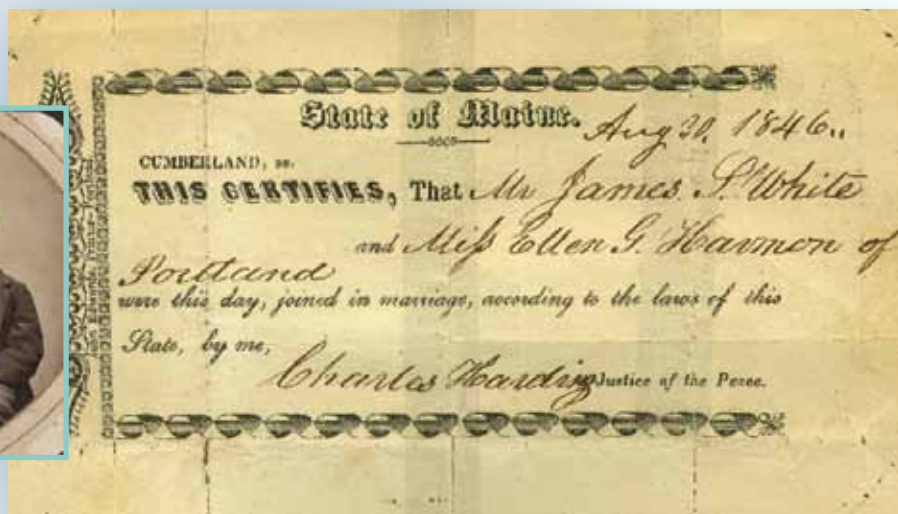 State of Maine.
Aug 30, 1846.
CUMBERLAND, ss.
THIS CERTIFIES, That Mr James S. White
and Miſs Ellen G. Harmon of
Portland
were this day, joined in marriage, according to the laws of this
State, by me,
Charles Harding Justice of the Peace.